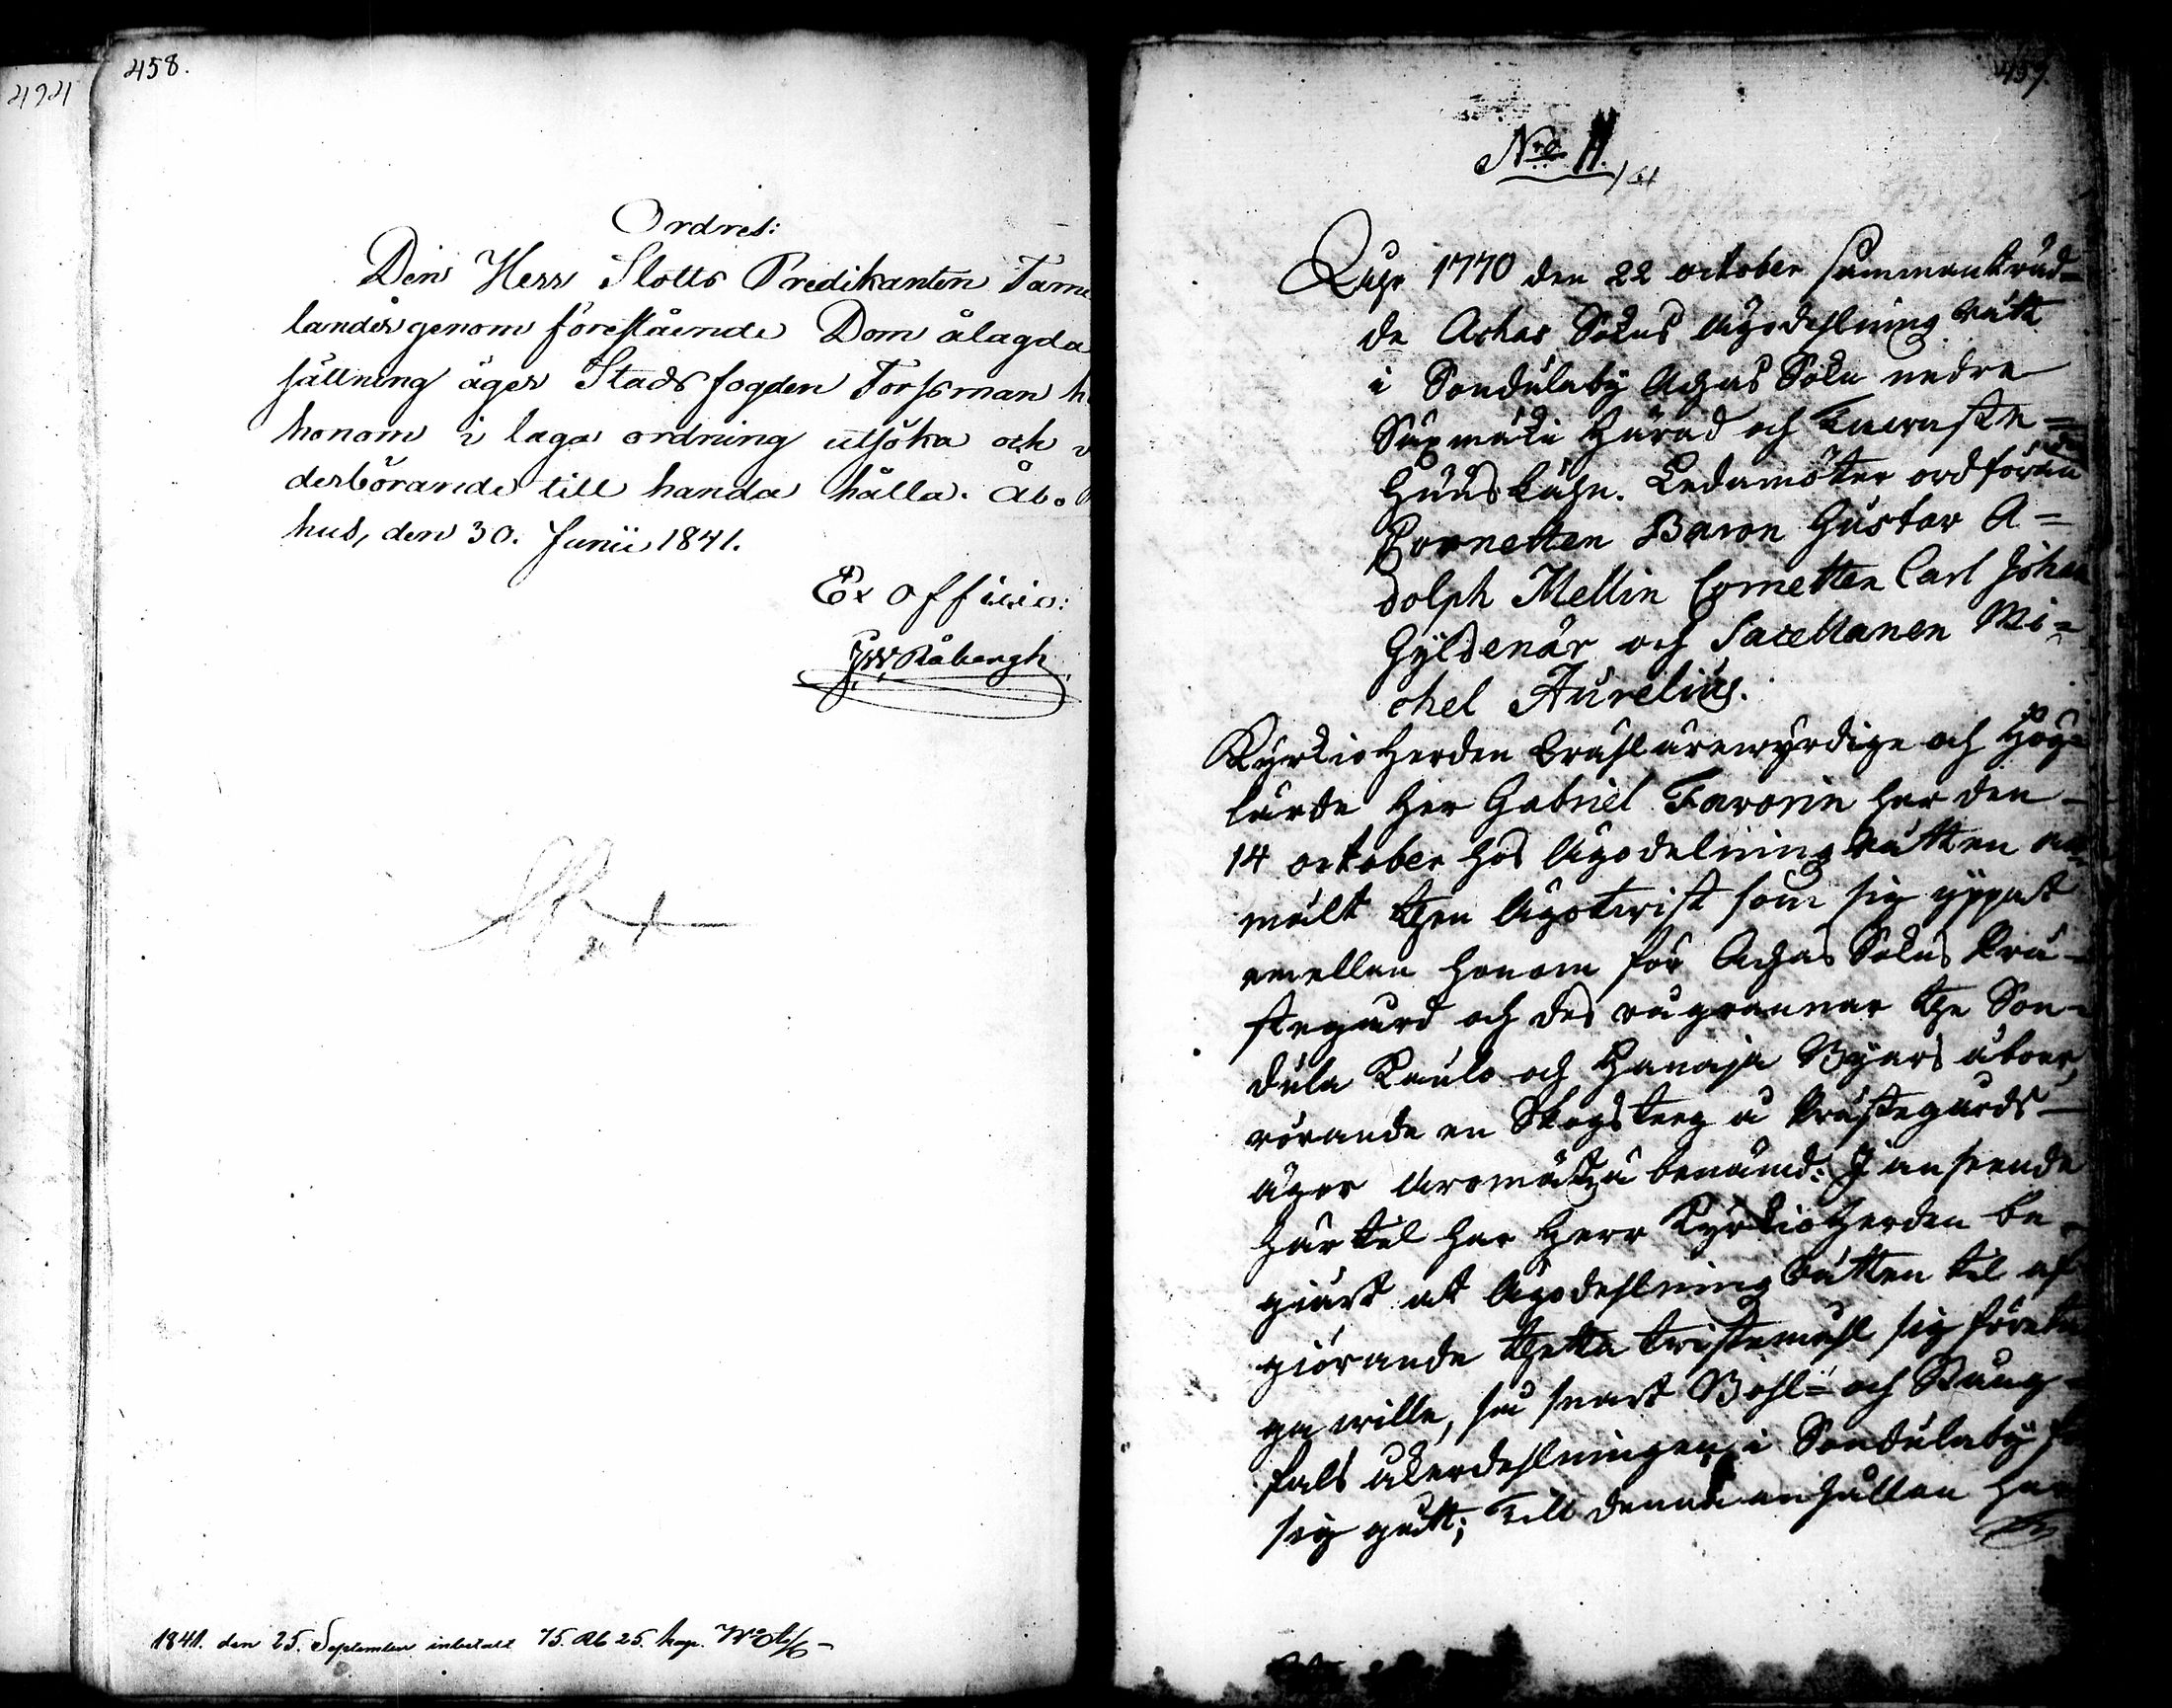 424
458.
Ordres:
Den Herr Slotts Predikanten Tame
lander genom förestående Dom ålagda
sättning äger Stads fogden Forssman h
honom i laga ordning utsöka och v
derbörande till handa hålla. Åbo
hus, den 30. Junii 1841.
Ex officio:
JW Råbergh
1841. den 25. September inbetalt 75. Rb 25. kop.
459.
No 11.
Åhr 1770 den 22 october samman träd-
de Achas Sokns ägodehlning Rätt
i Sondulaby Achas Sokn nedre
Säxmäki Härad och Tavaste-
Huus Lähn. Ledamöter ordförande
Cornetten Baron Gustav A=
dolph Mellin Cornetten Carl Johan
Gyldenär och Sacellanen Mi=
chel Aurelius.
Kyrkio Herden Ährewyrdige och Hög=
lärde Her Gabriel Favorin har den
14 october hos Ägodelning Rätten an=
mält then Ägotwist som sig yppat
emellan honom för Achas Sokns Prä-
stegård och des rågrannar the Son-
dula Kaulo och Hanaja Byars åboer,
rörande en Skogsteeg å Prästegårds-
ägor Aromätzä benämd: I anseende
här til har Herr Kyrkioherden be-
giärt at Ägodehlning Rätten til af
giörande thetta twistemåhl sig företa
ga wille, så snart Bohl= och Stång-
fals åkerdehlningen i Sondulaby
sig gedt; Till denna anhållan har